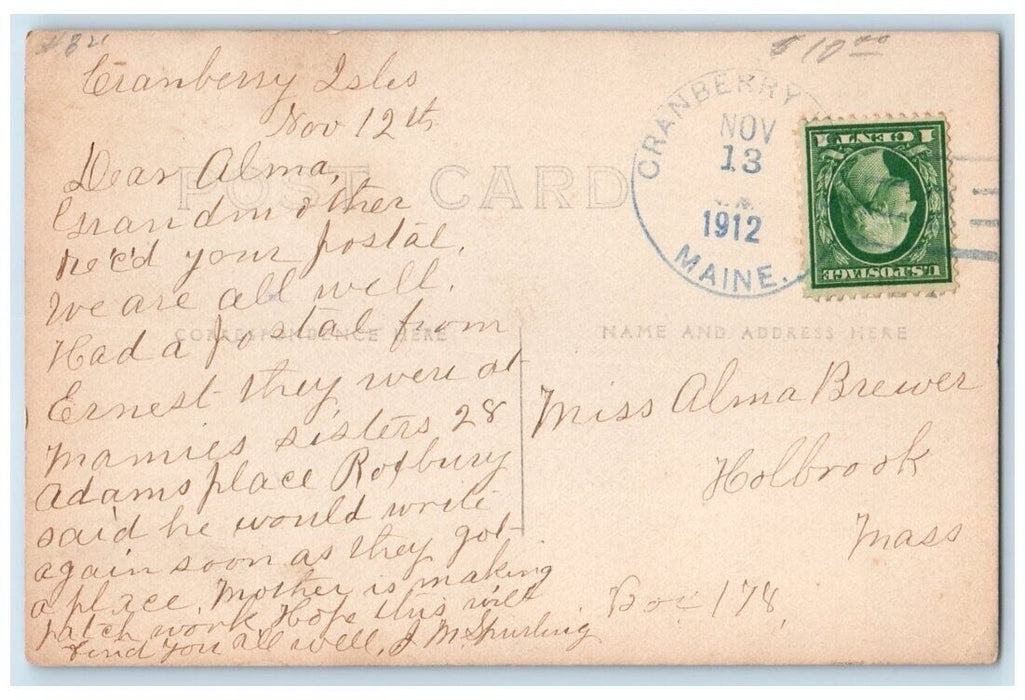 #84
$10.00
Cranberry Isles
Nov 12th
Dear Alma,
Grandmother
rec'd your postal.
We are all well.
Had a postal from
Ernest they were at
Mamies sisters 28
Adams place Roxbury
said he would write
again soon as they got
a place. Mother is making
patch work Hope this will
find you all well, J M Spurling
POST CARD
CORRESPONDENCE HERE
NAME AND ADDRESS HERE
CRANBERRY
NOV
13
1912
MAINE.
U.S.POSTAGE
1 CENT 1
Miss Alma Brewer
Holbrook
Mass
Box 178